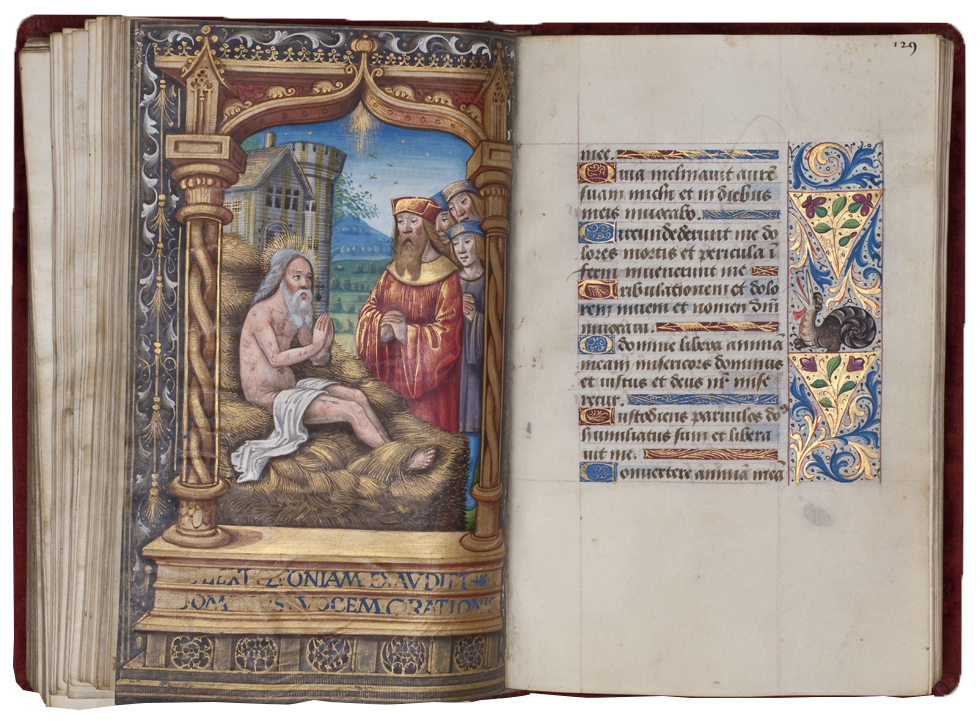 DILEXI QUONIAM EXAVDIET
DOMINVS VOCEM ORATIONIS
129
mee.
Quia inclinauit aurẽ
suam michi et in diebus
meis inuocabo.
Circundederunt me do
lores mortis et pericula i
ferni inuenerunt me
Tribulationem et dolo
rem inueni et nomen dñi
inuocaui.
O domine libera animã
meam misericors dominus
et iustus et deus nr̃ mise
retur.
Custodiens paruulos dñs
humiliatus sum et libera
uit me.
Conuertere anima mea